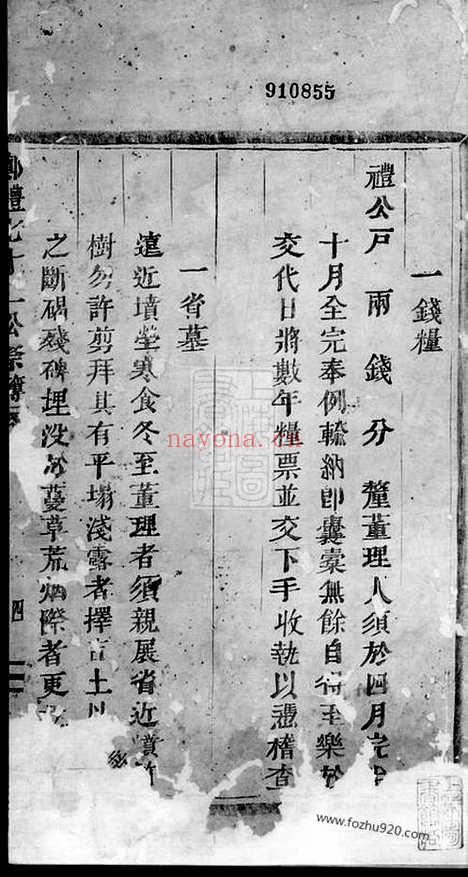 910855
一錢糧
禮公戸 兩 錢 分 釐董理人須於四月完半
十月全完奉例輸納卽囊橐無餘自得至樂於
交代日將數年糧票並交下手收執以憑稽查
一省墓
遠近墳塋寒食冬至董理者須親展省近墳竹
樹勿許剪拜其有平塌淺露者擇吉土以
之斷碣殘碑埋没於蔓草荒烟際者更
四
nayona.cn
www.fozhu920.com